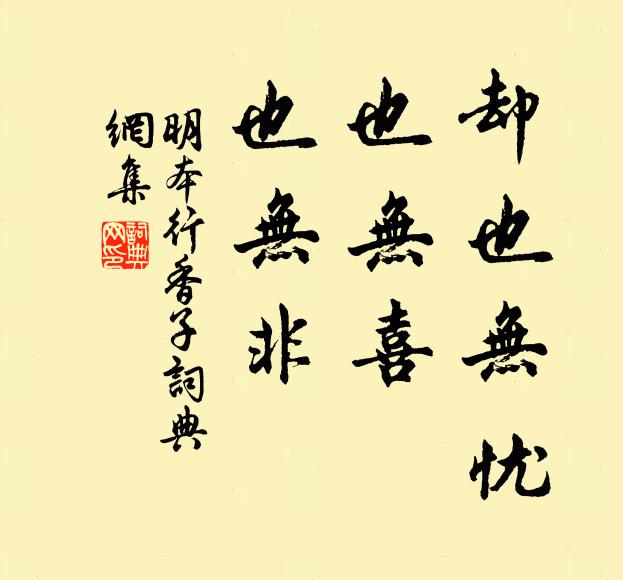 却也無忧
也無喜
也無非
明本行香子詞典
網集
詞典网印